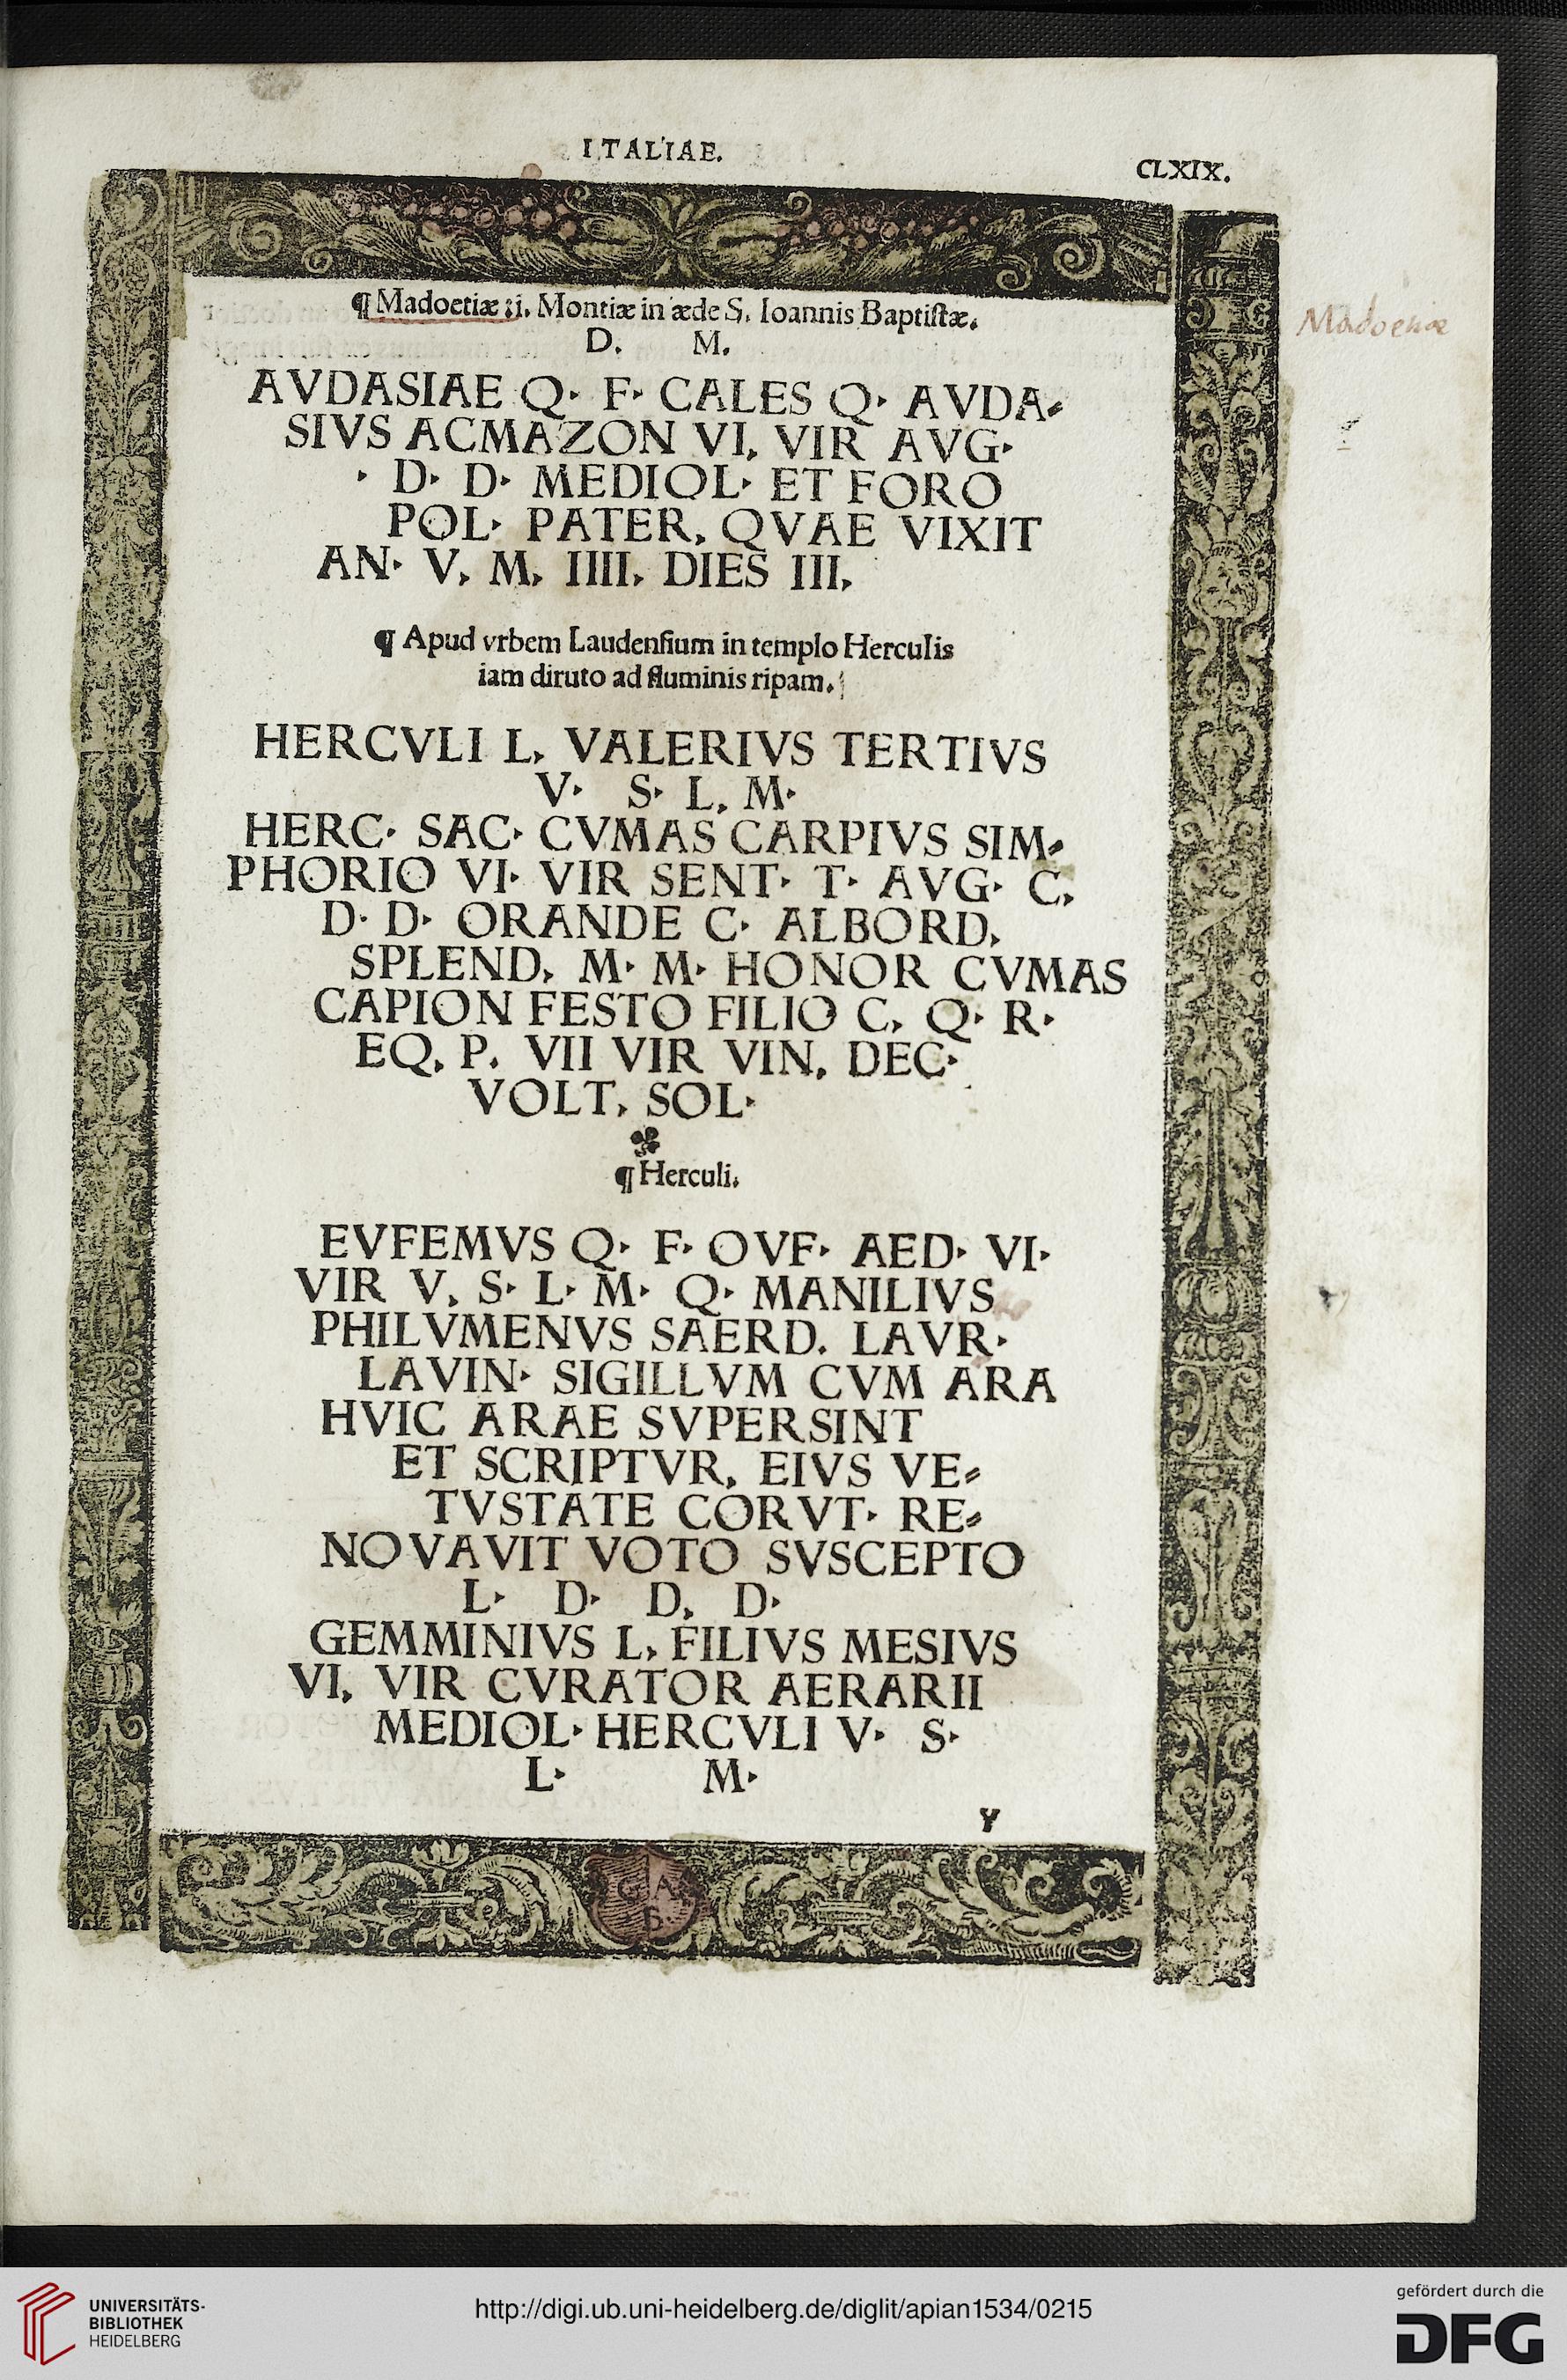 ITALIAE.
CLXIX.
¶ Madoetiæ :i. Montiæ in æde S. Ioannis Baptistæ.
Madoetiæ
D. M.
AVDASIAE Q· F· CALES Q· AVDA⸗
SIVS ACMAZON VI, VIR AVG·
· D· D· MEDIOL· ET FORO
POL· PATER, QVAE VIXIT
AN· V, M, IIII, DIES III,
¶ Apud vrbem Laudensium in templo Herculis
iam diruto ad fluminis ripam.
HERCVLI L, VALERIVS TERTIVS
V· S· L, M·
HERC· SAC· CVMAS CARPIVS SIM⸗
PHORIO VI· VIR SENT· T· AVG· C,
D· D· ORANDE C· ALBORD,
SPLEND, M· M· HONOR CVMAS
CAPION FESTO FILIO C, Q· R·
EQ, P. VII VIR VIN, DEC·
VOLT, SOL·
¶ Herculi.
EVFEMVS Q· F· OVF· AED· VI·
VIR V, S· L· M· Q· MANILIVS
PHILVMENVS SAERD. LAVR·
LAVIN· SIGILLVM CVM ARA
HVIC ARAE SVPERSINT
ET SCRIPTVR, EIVS VE⸗
TVSTATE CORVT· RE⸗
NOVAVIT VOTO SVSCEPTO
L· D· D, D·
GEMMINIVS L, FILIVS MESIVS
VI, VIR CVRATOR AERARII
MEDIOL· HERCVLI V· S·
L· M·
Y
G A
B
UNIVERSITÄTS-
BIBLIOTHEK
HEIDELBERG
http://digi.ub.uni-heidelberg.de/diglit/apian1534/0215
gefördert durch die
DFG